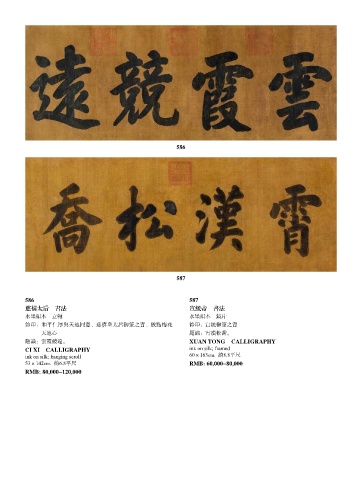 雲霞競遠
586
霄漢松喬
587
586
慈禧太后 書法
水墨絹本 立軸
鈐印：和平仁厚與天地同意、慈禧皇太后御筆之寶、數點梅花
天地心
題識：雲霞競遠。
CI XI CALLIGRAPHY
ink on silk; hanging scroll
53 x 142cm. 約6.8平尺
RMB: 80,000–120,000
587
宣統帝 書法
水墨絹本 鏡片
鈐印：宣統御筆之寶
題識：霄漢松喬。
XUAN TONG CALLIGRAPHY
ink on silk; framed
RMB: 60,000–80,000